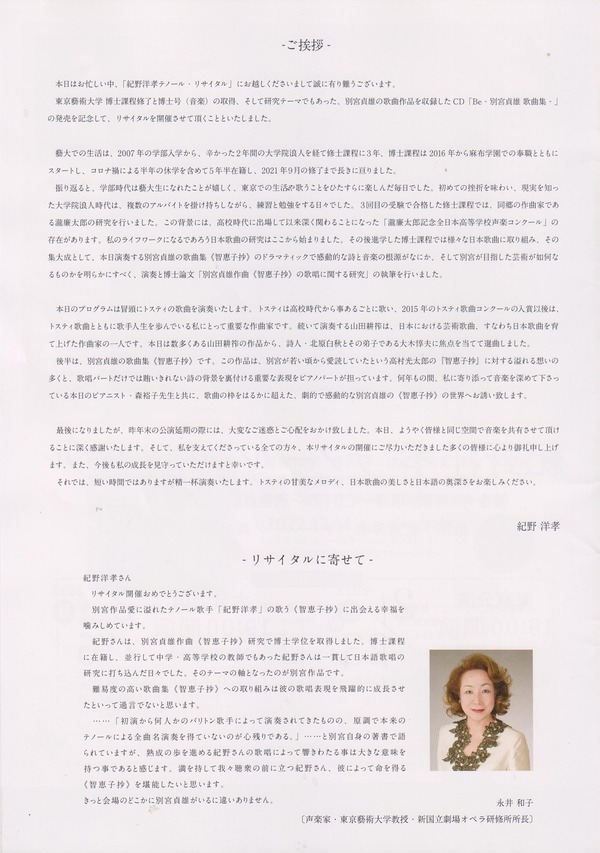 -ご挨拶-
本日はお忙しい中、「紀野洋孝テノール・リサイタル」にお越しくださいまして誠に有り難うございます。
東京藝術大学 博士課程修了と博士号（音楽）の取得、そして研究テーマでもあった、別宮貞雄の歌曲作品を収録した CD「Be - 別宮貞雄 歌曲集 -」
の発売を記念して、リサイタルを開催させて頂くことといたしました。
藝大での生活は、2007 年の学部入学から、辛かった２年間の大学院浪人を経て修士課程に３年、博士課程は 2016 年から麻布学園での奉職とともに
スタートし、コロナ禍による半年の休学を含めて５年半在籍し、2021 年９月の修了まで長きに亘りました。
振り返ると、学部時代は藝大生になれたことが嬉しく、東京での生活や歌うことをひたすらに楽しんだ毎日でした。初めての挫折を味わい、現実を知っ
た大学院浪人時代は、複数のアルバイトを掛け持ちしながら、練習と勉強をする日々でした。３回目の受験で合格した修士課程では、同郷の作曲家であ
る瀧廉太郎の研究を行いました。この背景には、高校時代に出場して以来深く関わることになった「瀧廉太郎記念全日本高等学校声楽コンクール」の
存在があります。私のライフワークになるであろう日本歌曲の研究はここから始まりました。その後進学した博士課程では様々な日本歌曲に取り組み、その
集大成として、本日演奏する別宮貞雄の歌曲集《智恵子抄》のドラマティックで感動的な詩と音楽の根源がなにか、そして別宮が目指した芸術が如何な
るものかを明らかにすべく、演奏と博士論文「別宮貞雄作曲《智恵子抄》の歌唱に関する研究」の執筆を行いました。
本日のプログラムは冒頭にトスティの歌曲を演奏いたします。トスティは高校時代から事あるごとに歌い、2015 年のトスティ歌曲コンクールの入賞以後は、
トスティ歌曲とともに歌手人生を歩んでいる私にとって重要な作曲家です。続いて演奏する山田耕筰は、日本における芸術歌曲、すなわち日本歌曲を育
て上げた作曲家の一人です。本日は数多くある山田耕筰の作品から、詩人・北原白秋とその弟子である大木惇夫に焦点を当てて選曲しました。
後半は、別宮貞雄の歌曲集《智恵子抄》です。この作品は、別宮が若い頃から愛読していたという高村光太郎の『智恵子抄』に対する溢れる想いの
多くと、歌唱パートだけでは賄いきれない詩の背景を裏付ける重要な表現をピアノパートが担っています。何年もの間、私に寄り添って音楽を深めて下さっ
ている本日のピアニスト・森裕子先生と共に、歌曲の枠をはるかに超えた、劇的で感動的な別宮貞雄の《智恵子抄》の世界へお誘い致します。
最後になりましたが、昨年末の公演延期の際には、大変なご迷惑とご心配をおかけ致しました。本日、ようやく皆様と同じ空間で音楽を共有させて頂け
ることに深く感謝いたします。そして、私を支えてくださっている全ての方々、本リサイタルの開催にご尽力いただきました多くの皆様に心より御礼申し上げ
ます。また、今後も私の成長を見守っていただけますと幸いです。
それでは、短い時間ではありますが精一杯演奏いたします。トスティの甘美なメロディ、日本歌曲の美しさと日本語の奥深さをお楽しみください。
紀野 洋孝
- リサイタルに寄せて -
紀野洋孝さん
リサイタル開催おめでとうございます。
別宮作品愛に溢れたテノール歌手「紀野洋孝」の歌う《智恵子抄》に出会える幸福を
噛みしめています。
紀野さんは、別宮貞雄作曲《智恵子抄》研究で博士学位を取得しました。博士課程
に在籍し、並行して中学・高等学校の教師でもあった紀野さんは一貫して日本語歌唱の
研究に打ち込んだ日々でした。そのテーマの軸となったのが別宮作品です。
難易度の高い歌曲集《智恵子抄》への取り組みは彼の歌唱表現を飛躍的に成長させ
たといって過言でないと思います。
……「初演から何人かのバリトン歌手によって演奏されてきたものの、原調で本来の
テノールによる全曲名演奏を得ていないのが心残りである。」……と別宮自身の著書で語
られていますが、熟成の歩を進める紀野さんの歌唱によって響きわたる事は大きな意味を
持つ事であると感じます。満を持して我々聴衆の前に立つ紀野さん、彼によって命を得る
《智恵子抄》を堪能したいと思います。
きっと会場のどこかに別宮貞雄がいるに違いありません。
永井 和子
〔声楽家・東京藝術大学教授・新国立劇場オペラ研修所所長〕